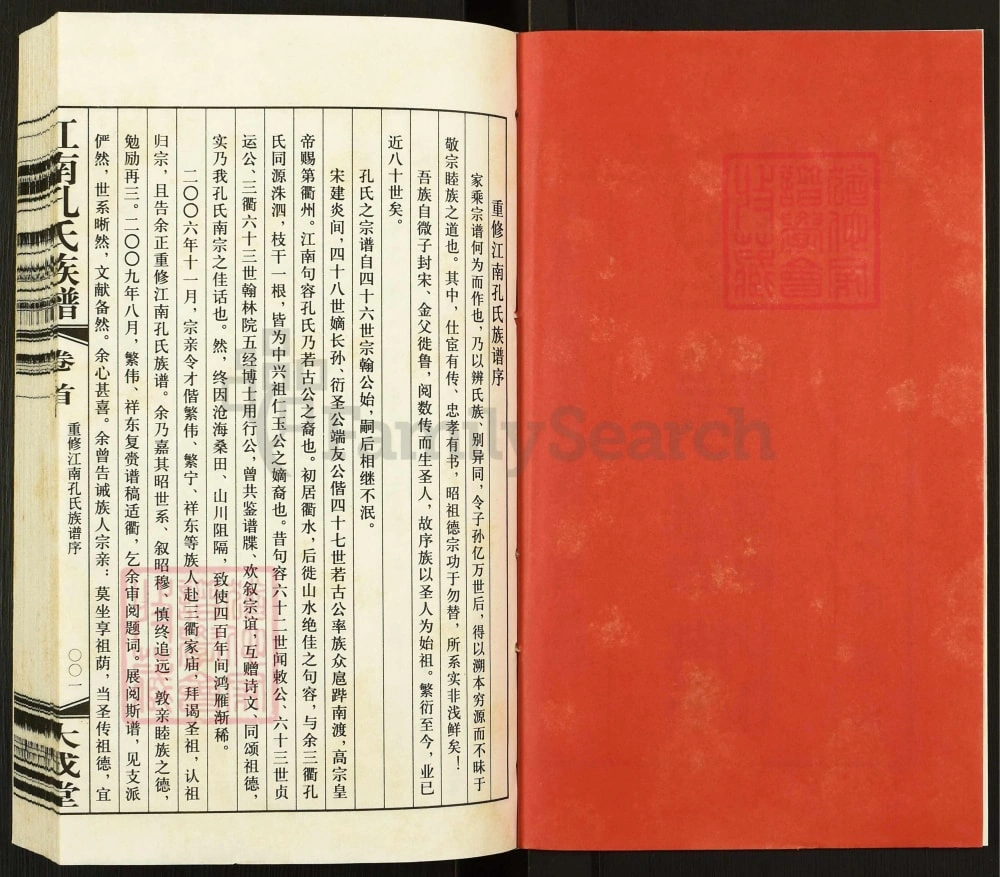 重修江南孔氏族谱序
家乘宗谱何为而作也，乃以辨氏族、别异同，令子孙亿万世后，得以溯本穷源而不昧于
敬宗睦族之道也。其中，仕宦有传、忠孝有书，昭祖德宗功于勿替，所系实非浅鲜矣！
吾族自微子封宋、金父徙鲁，阅数传而生圣人，故序族以圣人为始祖。繁衍至今，业已
近八十世矣。
孔氏之宗谱自四十六世宗翰公始，嗣后相继不泯。
宋建炎间，四十八世嫡长孙、衍圣公端友公偕四十七世若古公率族众扈跸南渡，高宗皇
帝赐第衢州。江南句容孔氏乃若古公之裔也。初居衢水，后徙山水绝佳之句容，与余三衢孔
氏同源洙泗，枝干一根，皆为中兴祖仁玉公之嫡裔也。昔句容六十二世闻敕公、六十三世贞
运公、三衢六十三世翰林院五经博士用行公，曾共鉴谱牒、欢叙宗谊，互赠诗文、同颂祖德，
实乃我孔氏南宗之佳话也。然，终因沧海桑田、山川阻隔，致使四百年间鸿雁渐稀。
二〇〇六年十一月，宗亲令才偕繁伟、繁宁、祥东等族人赴三衢家庙，拜谒圣祖，认祖
归宗，且告余正重修江南孔氏族谱。余乃嘉其昭世系、叙昭穆，慎终追远，敦亲睦族之德，
勉励再三。二〇〇九年八月，繁伟、祥东复赍谱稿适衢，乞余审阅题词。展阅斯谱，见支派
俨然，世系晰然，文献备然。余心甚喜。余曾告诫族人宗亲：莫坐享祖荫，当圣传祖德，宜
江南孔氏族谱
卷首
重修江南孔氏族谱序
〇〇一
大成堂
FamilySearch